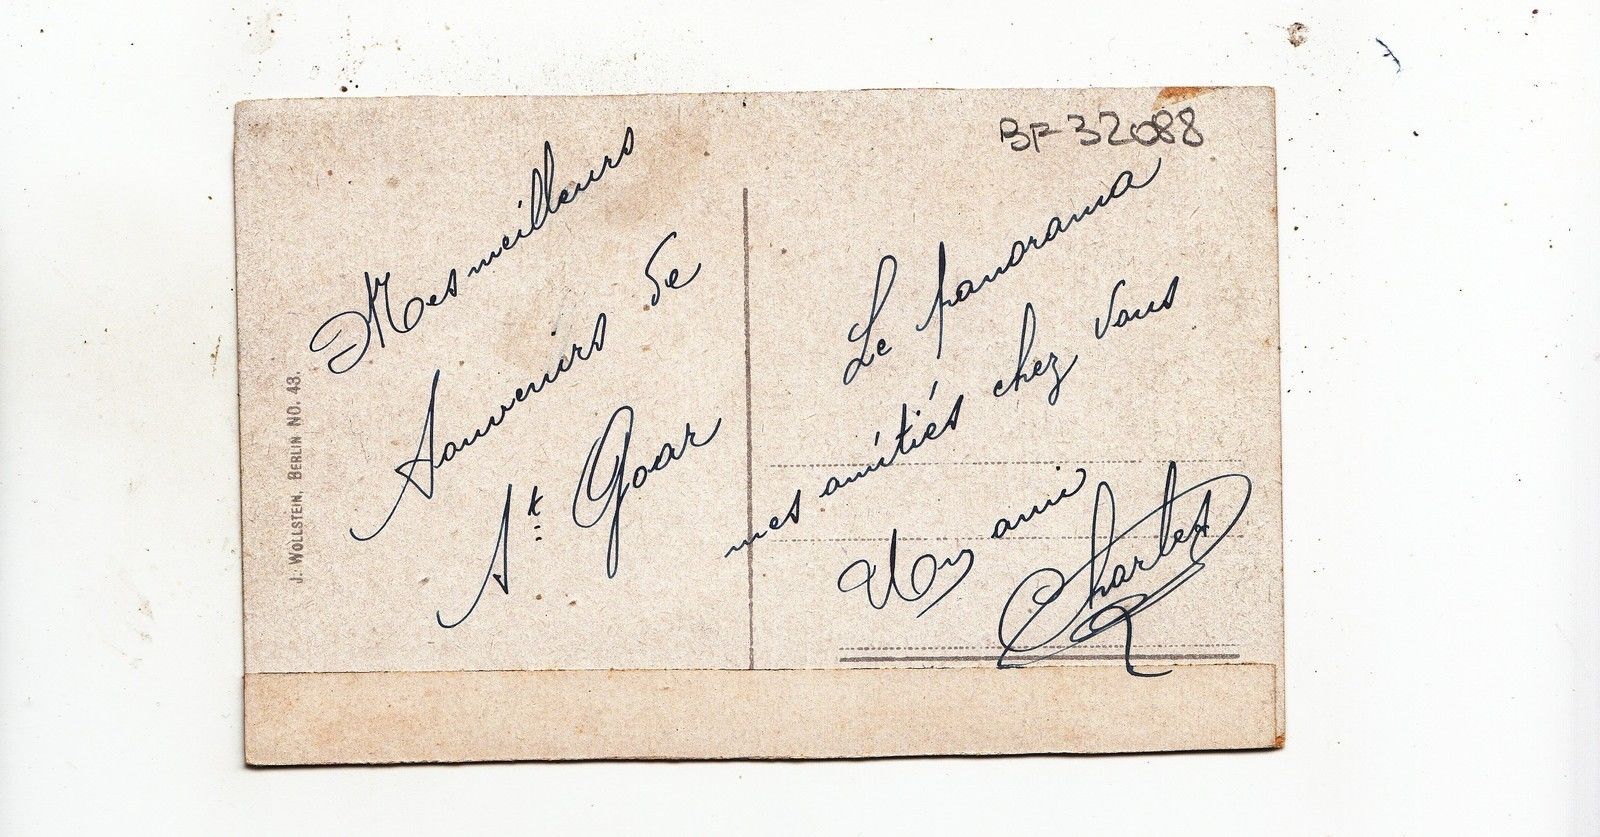 BF 32088
Mes meilleurs
Souvenirs de
St Goar
Le panorama
mes amitiés chez vous
Un ami
Charles
J. WOLLSTEIN, BERLIN NO. 43.